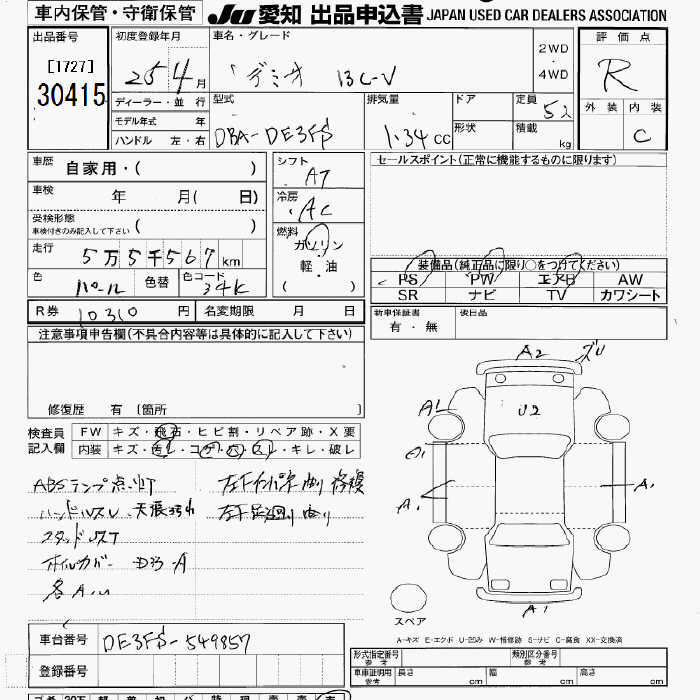 車内保管・守衛保管 JU 愛知 出品申込書 JAPAN USED CAR DEALERS ASSOCIATION
出品番号
[1727]
30415
初度登録年月
25 4 月
車名・グレード
デミオ 13C-V
2WD
・
4WD
評価点
R
外装 内装
C
ディーラー・並行
モデル年式 年
ハンドル 左・右
型式
DBA-DE3FS
排気量
1.34 CC
ドア
形状
定員
5人
積載
kg
車歴 自家用・( )
車検 年 月( 日)
受検形態
車検付きのみ記入して下さい ( )
走行 5万5千567km
色 パール 色替 色コード 34K
シフト
AT
冷房
AC
燃料
ガソリン
・
軽・油
セールスポイント(正常に機能するものに限ります)
装備品(純正品に限り○をつけてください)
PS PW エアB AW
SR ナビ TV カワシート
R券 10310 円 名変期限 月 日
新車保証書
有・無
後日品
注意事項申告欄(不具合内容等は具体的に記入して下さい)
修復歴 有 [箇所
検査員
記入欄
FW キズ・飛石・ヒビ割・リペア跡・X要
内装 キズ・汚レ・コゲ・穴・スレ・キレ・破レ
ABSランプ点灯
ハンドルスレ
スタッドレスT
ホイルカバー
各A.U
A2 ズレ
U2
A1
A1
A1
A1
A1
スペア
A-キズ E-エクボ U-凹み W-補修跡 S-サビ C-腐食 XX-交換済
車台番号 DE3FS-549857
登録番号
形式指定番号
参考
類別区分番号
参考
車車証明用
参考
長さ cm 幅 cm 高さ cm